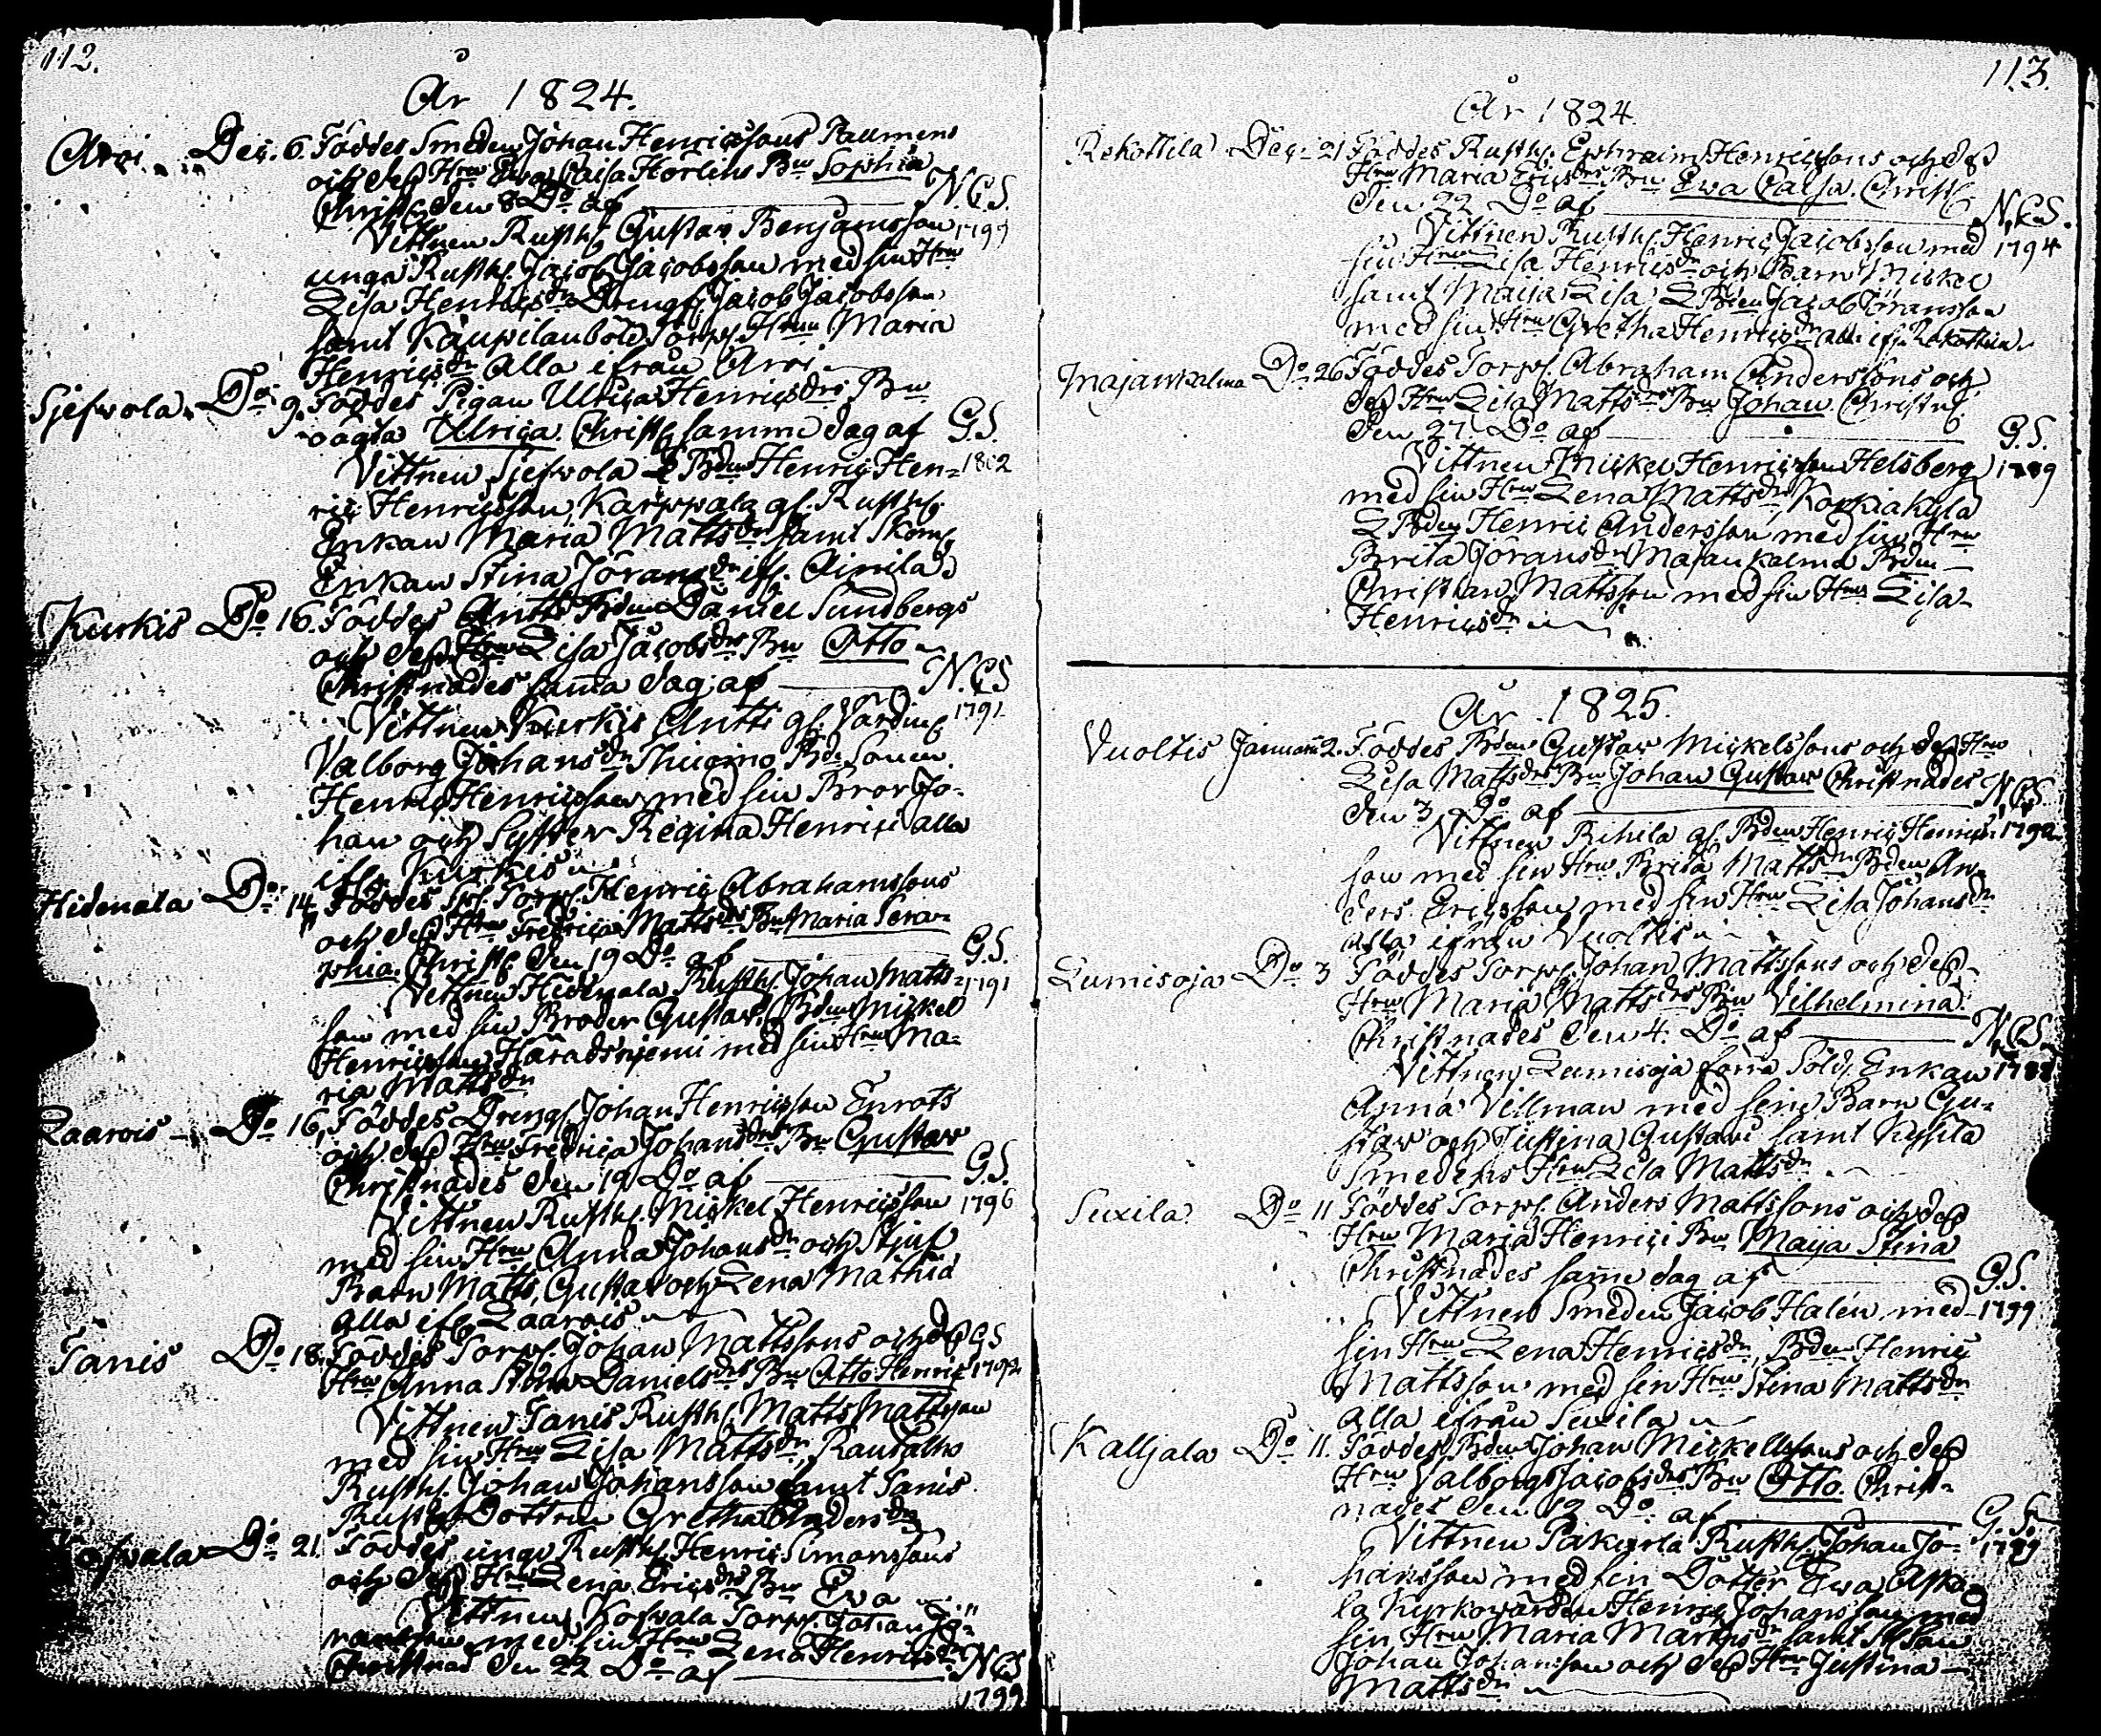 112.
År 1824.
Arvi Dec. 6. Föddes Smeden Johan Henricssons Tallmens
och dess Hru Ewa Caisa Hörlins Bn Sophia
Christ. den 8 Do af N.C.S.
Vittnen Rusth. Gustav Benjamsson 1799
unga Rusth. Jacob Jacobsson med sin Hru
Lisa Henricsdr Drengs. Jacob Jacobsson
samt Kaupilanböle Torps. Hrun Maria
Henricsdr Alla ifrån Arvi
Sjefvola Do 9. Föddes Pigan Ulrica Henricsdrs Bn
oägta Ulrica. Christ. samma dag af G.S.
Vittnen Sjefvola Bden Henric Hen= 1802
ric Henricsson, Karwwala gl. Rusth.
Enkan Maria Mattsdr samt Skom.
Enkan Stina Göransdr if. Ainila
Kurkis Do 16. Föddes Antts Bden Daniel Sundbergs
och dess Hru Lisa Jacobsdrs Bn Otto
Christnades samma dag af N.C.S
Vittnen Kurkis Antti gl. Värdin. 1791
Valborg Johansdr Bde Sonen
Henric Henricsson med sin Bror Jo-
han och Syster Regina Henrici alla
ifr. Kurkis
Hidenala Do 14. Föddes Torp. Henric Abrahamssons
och dess Hru Fredrica Mattsdrs Bn Maria Sera=
phia. Christ. den 19 Do af G.S.
Vittnen Hidenala Rusth. Johan Matts= 1791
son med sin Broder Gustav, Bden Mickel
Henricsson Häradsnjemi med sin Hru Ma=
ria Mattsdr
Laarois Do 16. Föddes Drengs. Johan Henricsson Enrots
och dess Hru Fredrica Johansdrs Bn Gustav
Christnades den 19 Do af G.S.
Vittnen Rusth. Mickel Henricsson 1796
med sin Hru Anna Johansdr och Stjuf
Barn Matts, Gustav och Lena Mathia
alla ifr. Laarois
Tanis Do 18. Föddes Torp. Johan Mattssons och dess G.S
Hru Anna Stina Danielsdrs Bn Otto Henric 1792
Vittnen Tanis Rusth. Matts Mattsson
med sin Hru Lisa Mattsdr, Rautalho
Rusth. Johan Johansson samt Tanis
Rusth. Dottren Gretha Andersdr
Kofvala Do 21. Föddes unga Rusth. Henric Simonssons
och dess Hru Lena Ericsdrs Bn Eva
Vittnen Kofvala Torp. Johan Jö=
ransson med sin Hru Lena Henricsdr
Christnad den 22 Do af N.C.S
1799
113.
År 1824.
Rekottila Dec. 21 Föddes Rusth. Ephraim Henricssons och dess
Hru Maria Ericsdrs Bn Ewa Caisa. Christ.
den 22 Do af N.C.S.
Vittnen Rusth. Henric Jacobsson med 1794
sin Hru Lisa Henricsdr och Barn Mickel
samt Maija Lisa, Bden Jacob Göransson
med sin Hru Gretha Henricsdr alla ifr. Rekottila
Majankalma Do 26 Föddes Torp. Abraham Anderssons och
dess Hru Lisa Mattsdrs Bn Johan. Christn.
den 27 Do af G.S.
Vittnen Mickel Henricsson Helsberg 1789
med sin Hru Lena Mattsdr, Korkiakylä
Bden Henric Andersson med sin Hru
Brita Göransdr, Majankalma Bden
Christian Mattsson med sin Hru Lisa
Henricsdr
År 1825.
Vuoltis Januarii 2. Föddes Bden Gustav Mickelssons och dess Hru
Lisa Mattsdrs Bn Johan Gustav Christnades
den 3 Do af N.C.S.
Vittnen Rihila gl. Bden Henric Henrics= 1792
son med sin Hru Brita Mattsdr Bden An=
ders Ericsson med sin Hru Lisa Johansdr
alla ifrån Vuoltis
Lumisoja Do 3 Föddes Torp. Johan Mattssons och dess
Hru Maria Mattsdrs Bn Vilhelmina.
Christnades den 4. Do af N.C.S.
Vittnen Lumisoja förra Sold. Enkan 1788
Anna Villman med sine Barn Gu=
stav och Justina Gustavi samt Kyhila
Smedens Hru Lisa Mattsdr
Suxila Do 11 Föddes Torp. Anders Mattssons och dess
Hru Maria Henrici Bn Maija Stina
Christnades same dag af G.S.
Vittnen Smeden Jacob Halén med 1799
sin Hru Lena Henricsdr, Bden Henric
Mattsson med sin Hru Stina Mattsdr
alla ifrån Suxila
Kalljala Do 11. Föddes Bden Johan Mickellssons och dess
Hru Valborg Jacobsdrs Bn Otto. Christ=
nades den 12 Do af G.S.
Vittnen Pakurla Rusth. Johan Jo= 1799
hansson med sin Dotter Ewa, Aska=
la Kyrkovärden Henric Johansson med
sin Hru Maria Markusdr samt
Johan Johansson och dess Hru Justina
Mattsdr